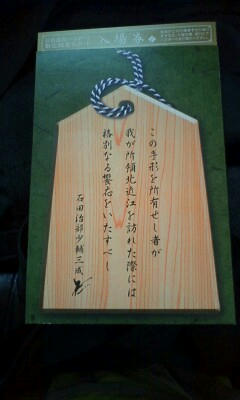 入場券
この手形を所有せし者が
我が所領北近江を訪れた際には
格別なる饗応をいたすべし
石田治部少輔三成